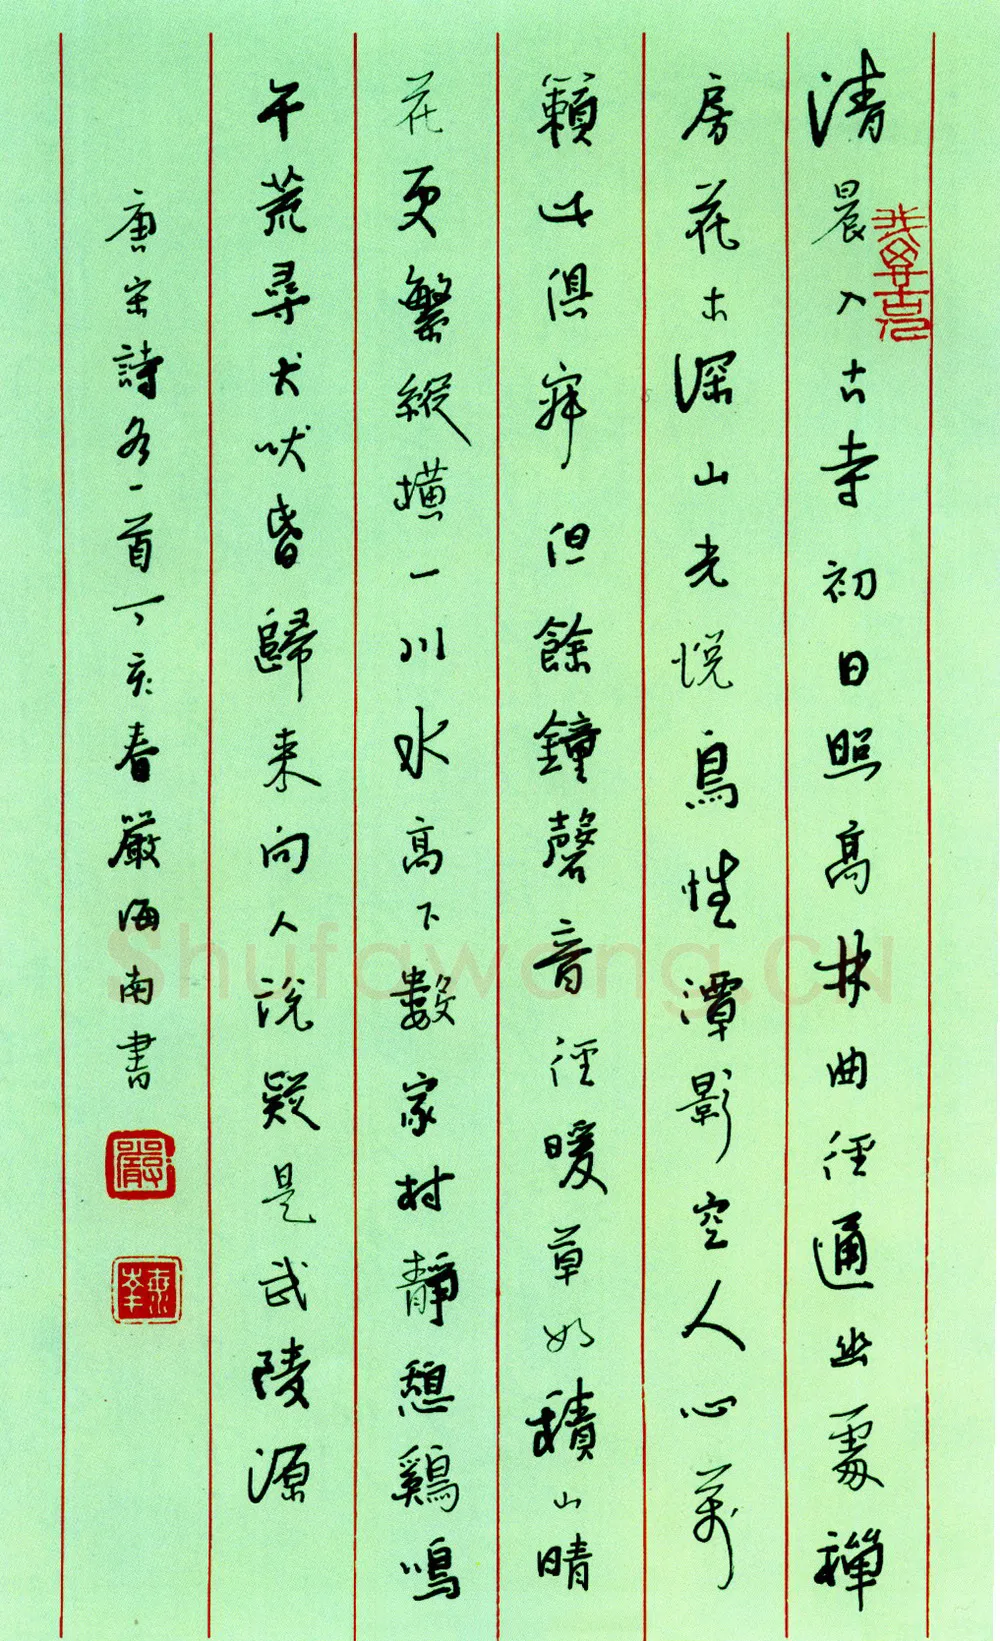 清晨入古寺初日照高林曲徑通幽處禪
房花木深山光悦鳥性潭影空人心萬
籟此俱寂但餘鐘磬音徑暖草如積山晴
花更繁縱横一川水高下數家村靜憩鷄鳴
午荒尋犬吠昏歸来向人説疑是武陵源
唐宋詩各一首丁亥春嚴海南書
嚴
Shufawang.CN